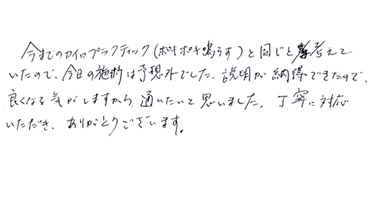 今までのカイロプラクティック(ボキボキ鳴らす)と同じと考えて
いたので、今日の施術は予想外でした。説明が納得できたので、
良くなる気がしますから、通いたいと思いました。丁寧に対応
いただき、ありがとうございます。